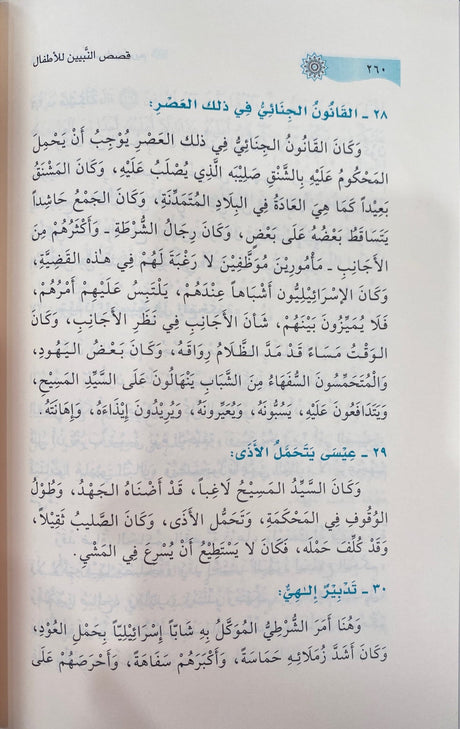 ٢٦٠
قصص النَّبيين للأطفال
٢٨ ـ القَانُونُ الجِنَائِيُّ فِي ذلك العَصْرِ:
وَكَانَ القَانُونُ الجِنَائِيُّ فِي ذلك العَصْرِ يُوْجِبُ أَنْ يَحْمِلَ
المَحْكُومُ عَلَيْهِ بِالشَّنْقِ صَلِيْبَه الَّذِي يُصْلَبُ عَلَيْهِ، وَكَانَ المَشْنَقُ
بَعِيْداً كَمَا هِيَ العَادَةُ فِي البِلَادِ المُتَمَدِّنَةِ، وَكَانَ الجَمْعُ حَاشِداً
يَتَسَاقَطُ بَعْضُهُ عَلَى بَعْضٍ، وَكَانَ رِجَالُ الشُّرْطَةِ ـ وَأَكْثَرُهُمْ مِنَ
الأَجَانِبِ ـ مَأْمُورِيْنَ مُوَظَّفِيْنَ لا رَغْبَةَ لَهُمْ فِي هٰذه القَضِيَّةِ،
وَكَانَ الإِسْرَائِيْلِيُّون أَشْبَاهاً عِنْدَهُمْ، يَلْتَبِسُ عَلَيْهِمْ أَمْرُهُمْ،
فَلَا يُمَيِّزُونَ بَيْنَهُمْ، شَأنَ الأَجَانِبِ فِي نَظَرِ الأَجَانِبِ، وَكَانَ
الوَقْتُ مَسَاءً قَدْ مَدَّ الظَّلَامُ رِوَاقَهُ، وَكَانَ بَعْضُ اليَهُودِ،
وَالْمُتَحَمِّسُونَ السُّفَهَاءُ مِنَ الشَّبَابِ يَنْهَالُونَ عَلَى السَّيِّدِ المَسِيْحِ،
وَيَتَدَافَعُونَ عَلَيْهِ، يَسُبُّونَهُ، وَيُعَيِّرُونَهُ، وَيُرِيْدُونَ إِيْذَاءَهُ، وَإِهَانَتَهُ.
٢٩ ـ عِيْسَى يَتَحَمَّلُ الأَذَى:
وَكَانَ السَّيِّدُ المَسِيْحُ لَاغِباً، قَدْ أَضْنَاهُ الجَهْدُ، وَطُوْلُ
الوُقُوفِ فِي المَحْكَمَةِ، وَتَحَمُّلِ الأَذَى، وَكَانَ الصَّلِيبُ ثَقِيْلاً،
وَقَدْ كُلِّفَ حَمْلَه، فَكَانَ لَا يَسْتَطِيْعُ أَنْ يُسْرِعَ فِي المَشْيِ.
٣٠ ـ تَدْبِيْرٌ إِلٰهِيٌّ:
وَهُنَا أَمَرَ الشُّرْطِيُّ المُوَكَّلُ بِهِ شَابّاً إِسْرَائِيْلِيّاً بِحَمْلِ العُوْدِ،
وَكَانَ أَشَدَّ زُمَلَائِـهِ حَمَاسَةً، وَأَكْبَرَهُمْ سَفَاهَةً، وَأَحْرَصَهُمْ عَلَى